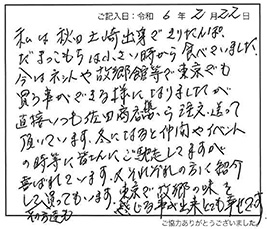 ご記入日:令和 6 年 2月22日
私は秋田土崎出身できりたんぽ
だまっこもちは小さい時から食べていました。
今はネットや故郷館等で東京でも
買う事ができる様になりましたが
直接いつも佐田商店様から注文、送って
頂いています。冬になると仲間やイベント
の時等に皆さんにご馳走してますが
喜ばれています。人それぞれの方に紹介
して送ってもいます。東京で故郷の味を
感じる事が出来とても幸せです。
ご協力ありがとうございました。